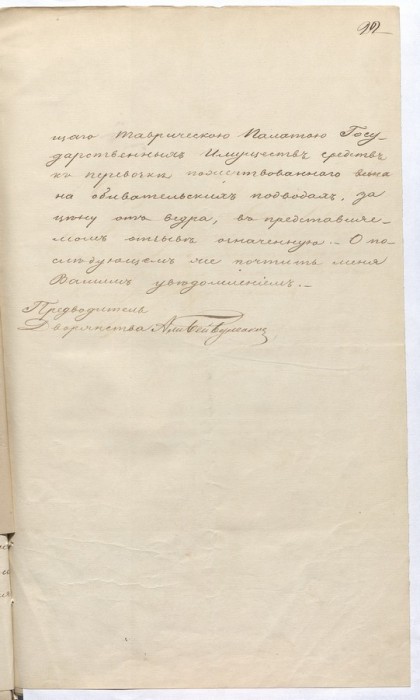 щаго Таврическою Палатою Госу-
дарственныхъ Имуществъ средствъ
къ перевозкѣ пожертвованнаго вина
на обывательскихъ подводахъ, за
цѣну отъ ведра, въ представляе-
момъ отзывѣ означенную. О по-
слѣдующемъ же почтить меня
Вашимъ увѣдомленіемъ.
Предводитель
Дворянства